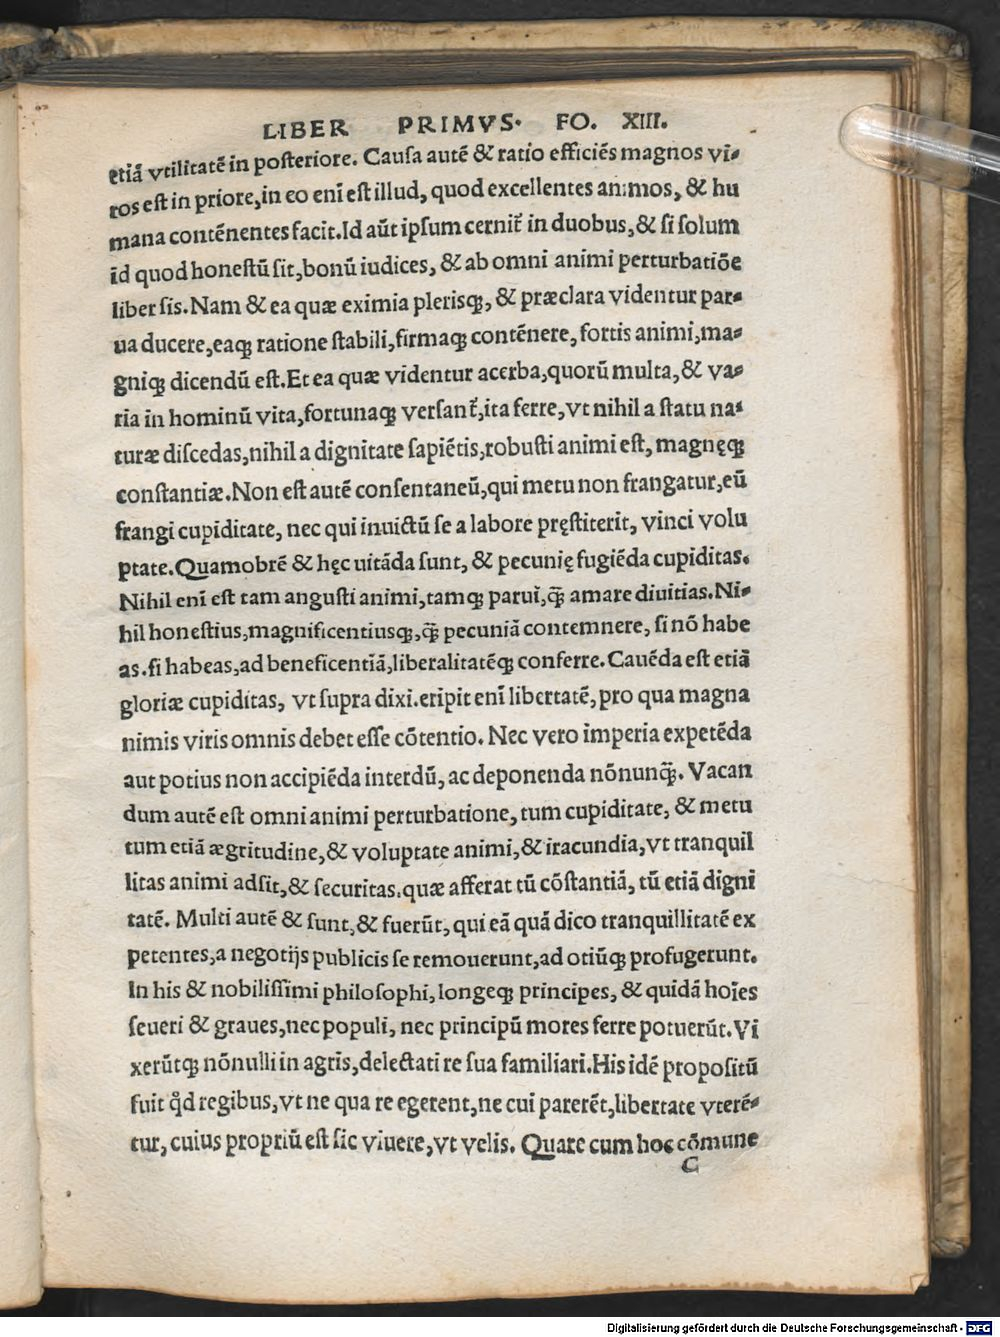 LIBER PRIMVS. FO. XIII.
etiã vtilitatẽ in posteriore. Causa autẽ & ratio efficiẽs magnos vi⸗
ros est in priore, in eo enĩ est illud, quod excellentes animos, & hu
mana contẽnentes facit. Id aũt ipsum cernit᷑ in duobus, & si solum
id quod honestũ sit, bonũ iudices, & ab omni animi perturbatiõe
liber sis. Nam & ea quæ eximia plerisq;, & præclara videntur par⸗
ua ducere, eaq; ratione stabili, firmaq; contẽnere, fortis animi, ma⸗
gniq; dicendũ est. Et ea quæ videntur acerba, quorũ multa, & va⸗
ria in hominũ vita, fortunaq; versant᷑, ita ferre, vt nihil a statu na⸗
turæ discedas, nihil a dignitate sapiẽtis, robusti animi est, magnęq;
constantiæ. Non est autẽ consentaneũ, qui metu non frangatur, eũ
frangi cupiditate, nec qui inuictũ se a labore pręstiterit, vinci volu
ptate. Quamobrẽ & hęc uitãda sunt, & pecunię fugiẽda cupiditas.
Nihil enĩ est tam angusti animi, tamq; parui, q̃ amare diuitias. Ni⸗
hil honestius, magnificentiusq;, q̃ pecuniã contemnere, si nõ habe
as. si habeas, ad beneficentiã, liberalitatẽq; conferre. Cauẽda est etiã
gloriæ cupiditas, vt supra dixi. eripit enĩ libertatẽ, pro qua magna
nimis viris omnis debet esse cõtentio. Nec vero imperia expetẽda
aut potius non accipiẽda interdũ, ac deponenda nõnunq̃. Vacan
dum autẽ est omni animi perturbatione, tum cupiditate, & metu
tum etiã ægritudine, & voluptate animi, & iracundia, vt tranquil
litas animi adsit, & securitas. quæ afferat tũ cõstantiã, tũ etiã digni
tatẽ. Multi autẽ & sunt, & fuerũt, qui eã quã dico tranquillitatẽ ex
petentes, a negotijs publicis se remouerunt, ad otiũq; profugerunt.
In his & nobilissimi philosophi, longeq; principes, & quidã hoĩes
seueri & graues, nec populi, nec principũ mores ferre potuerũt. Vi
xerũtq; nõnulli in agris, delectati re sua familiari. His idẽ propositũ
fuit q̊d regibus, vt ne qua re egerent, ne cui parerẽt, libertate vterẽ⸗
tur, cuius propriũ est sic viuere, vt velis. Quare cum hoc cõmune
C
Digitalisierung gefördert durch die Deutsche Forschungsgemeinschaft - DFG